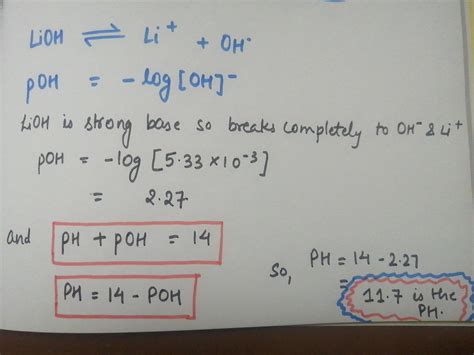 LiOH ⇌ Li⁺ + OH⁻
pOH = -log[OH]⁻
LiOH is strong base so breaks completely to OH⁻ & Li⁺
pOH = -log [5.33 × 10⁻³]
= 2.27
and PH + pOH = 14
PH = 14 - POH
So, PH = 14 - 2.27
= 11.7 is the
PH.